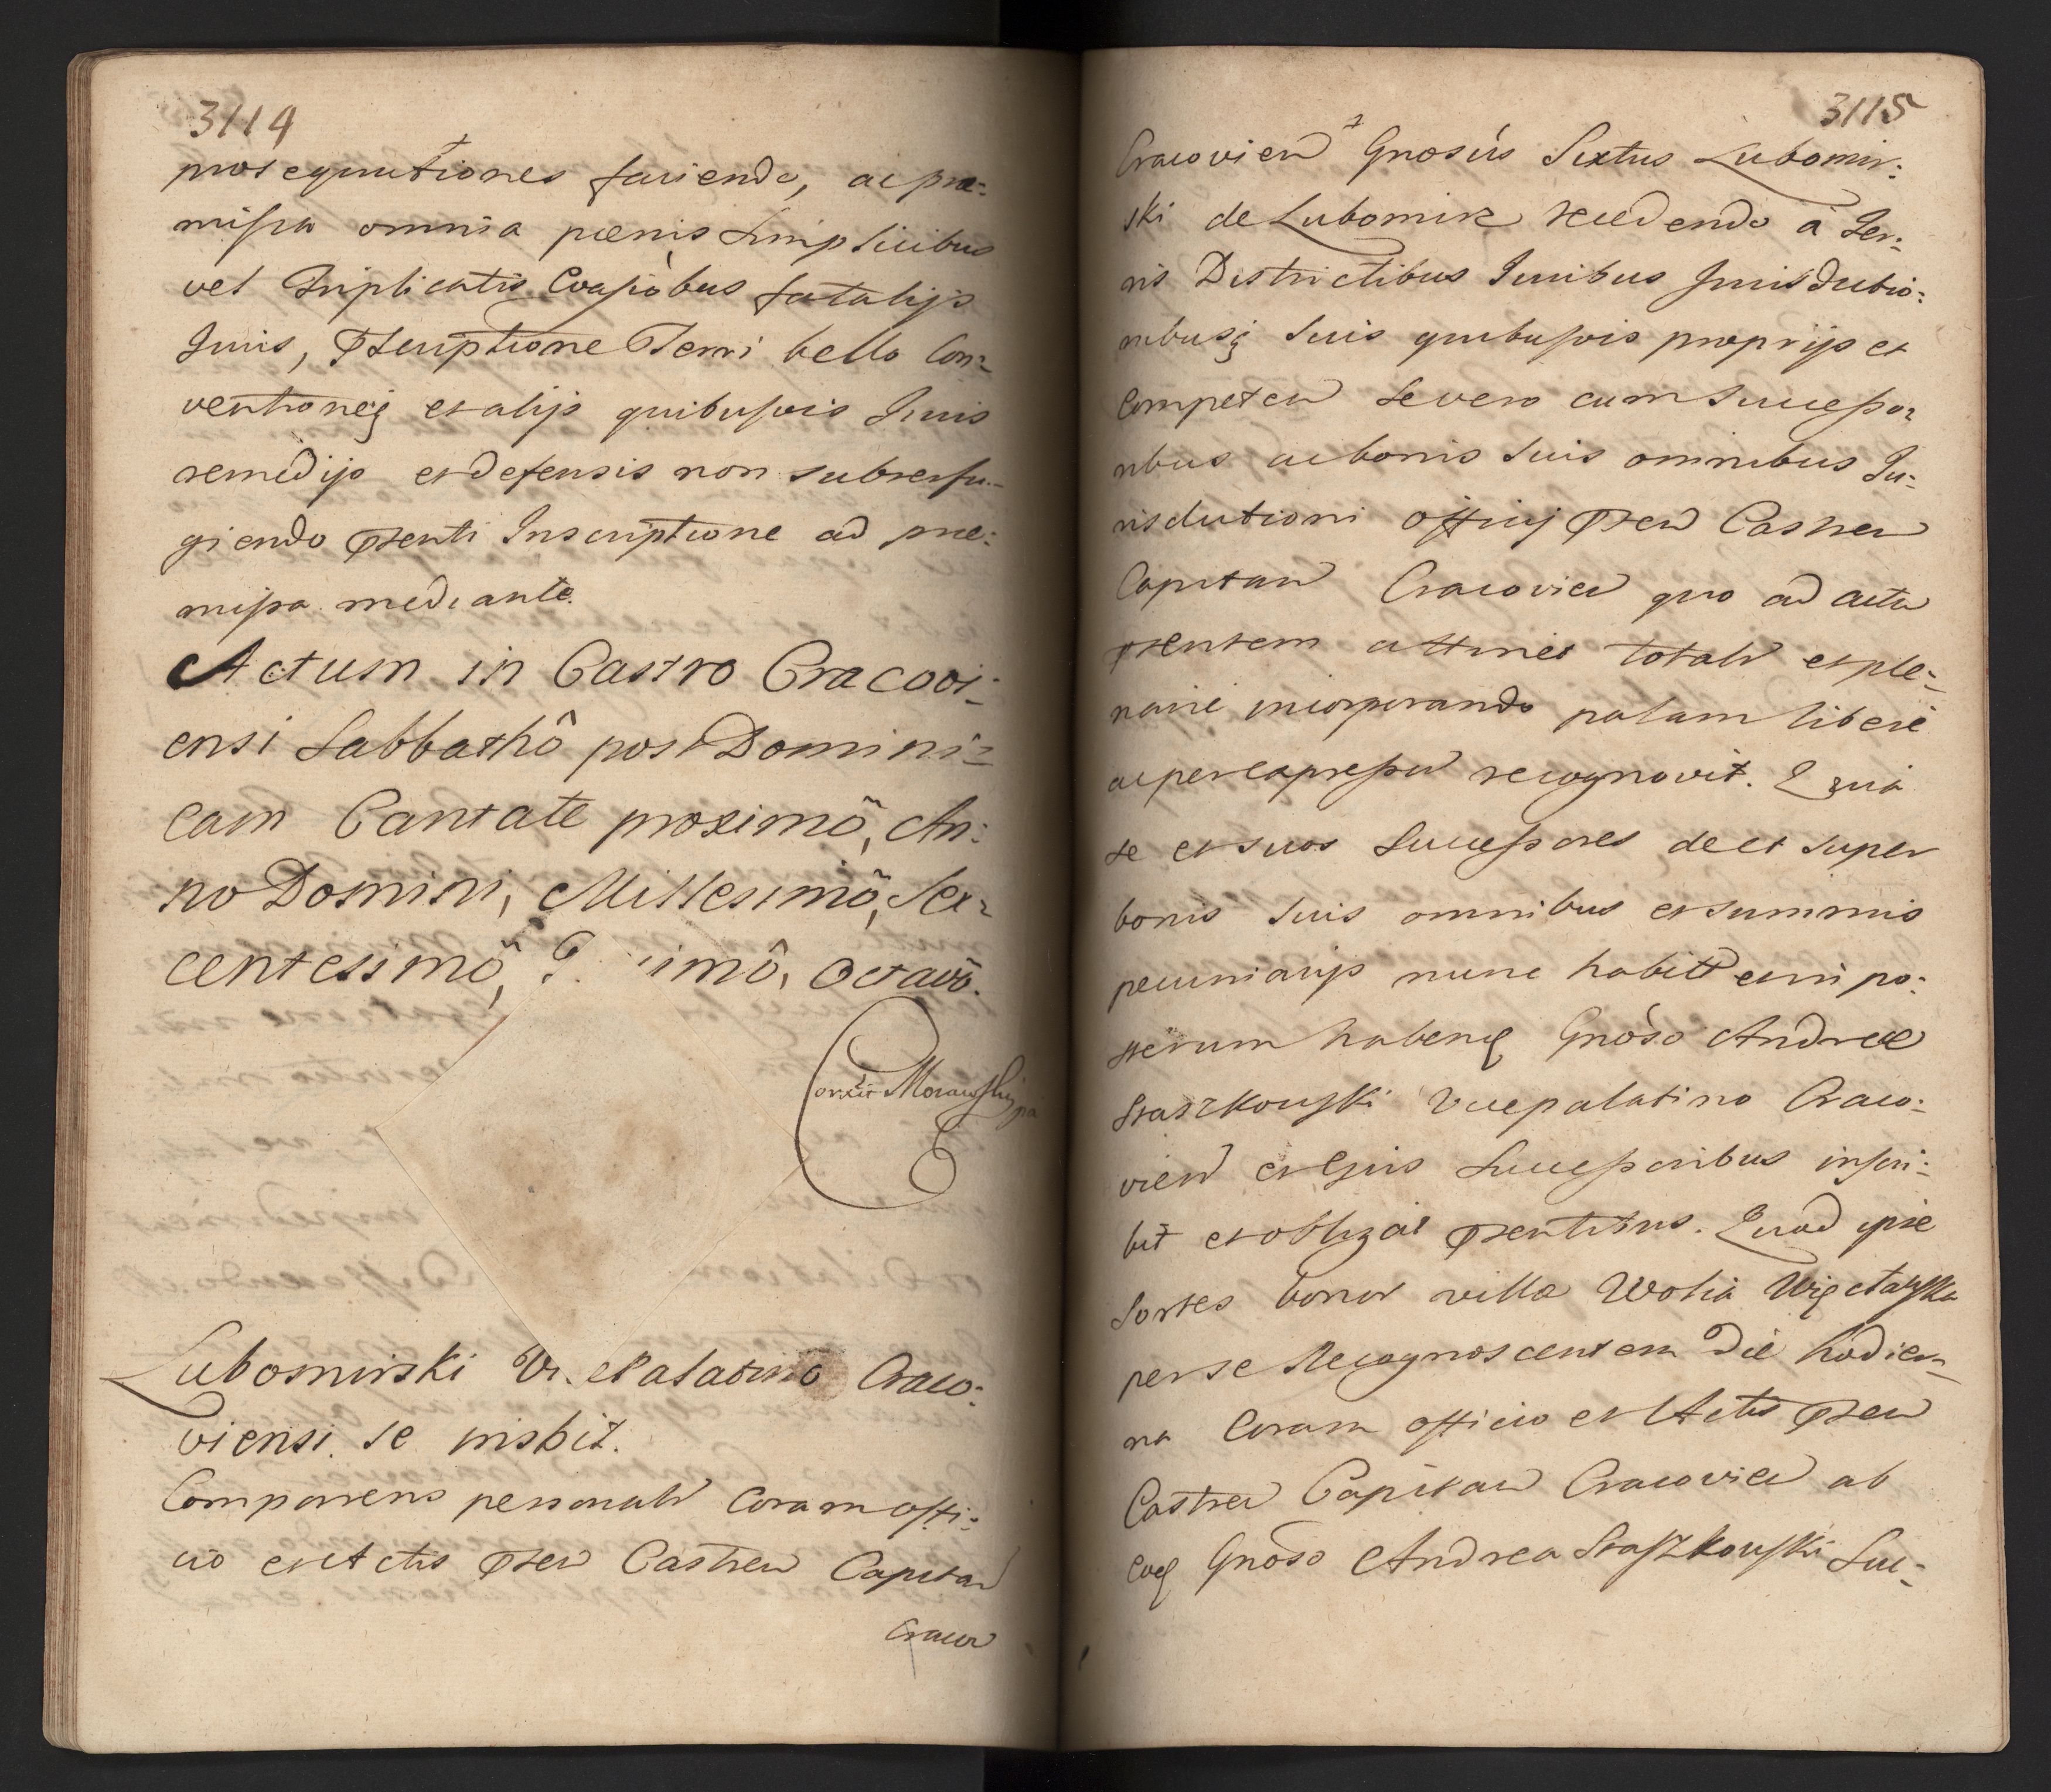 3114
prosequutiones faciendo, ac prae:
missa omnia poenis simplicibus
vel Triplicatis Evasiobus fatalijs
Juris, Pscriptione Terri bello Con:
ventioneq et alijs quibusvis Juris
remedijs et defensis non subterfu:
giendo psenti Inscriptione ad prae:
missa mediante.
Actum in Castro Cracovi:
ensi Sabbathô post Domini:
cam Cantate proximô, An:
no Domini, Millesimô, Sex:
centesimô, imô, Octavô.
Morawski
Lubomirski Palatino Craco:
viensi se insbit.
Comparens personalr Coram offi:
cio et Actis psen Castren Capitan
Cracov
3115
Cracovien Gnosus Sixtus Lubomir:
ski de Lubomirz recedendo a Ter:
ris Districtibus Juribus Jurisdictio:
nibusq suis quibusvis proprijs et
Competen se vero cum Successo:
ribus ac bonis suis omnibus Ju:
risdictioni officij psen Castren
Capitan Cracovien quo ad actu
psentem attinet totalr et ple:
narie incorporando palam libere
ac per expressu recognovit. Quia
se et suos Successores de et super
bonis suis omnibus et summis
pecuniarijs nunc habitt et in po:
sterum habenq Gnoso Andreae
Staszkowski Vicepalatino Craco:
vien et Ejus Successoribus inscri:
bit et obligat psentibus. Quod ipse
Sortes bonor villae Wolia Więcławska
per se Recognoscentem Die hodier:
na Coram officio et Actis psen
Castren Capitan Cracovien ab
eoq Gnoso Andrea Staszkowski Suc: